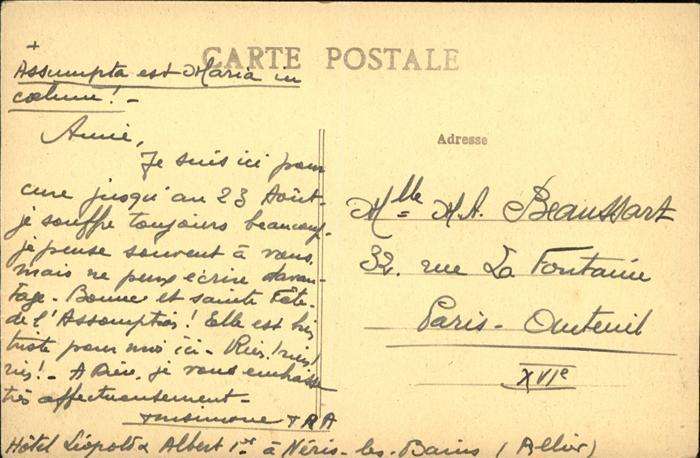 CARTE POSTALE
+
Assumpta est Maria in
cœlum! -
Amie,
Je suis ici pour
cure jusqu'au 23 Août -
je souffre toujours beaucoup,
je pense souvent à vous,
mais ne peux écrire davan-
tage - Bonne et sainte Fête
de l'Assomption! Elle est bien
triste pour moi ici - Riez! riez!
riez! - A Dieu, je vous embrasse
très affectueusement -
Hôtel Léopold & Albert 1er à Néris-les-Bains (Allier)
Adresse
Mlle M.A. Beaussart
32, rue La Fontaine
Paris - Auteuil
XVIe